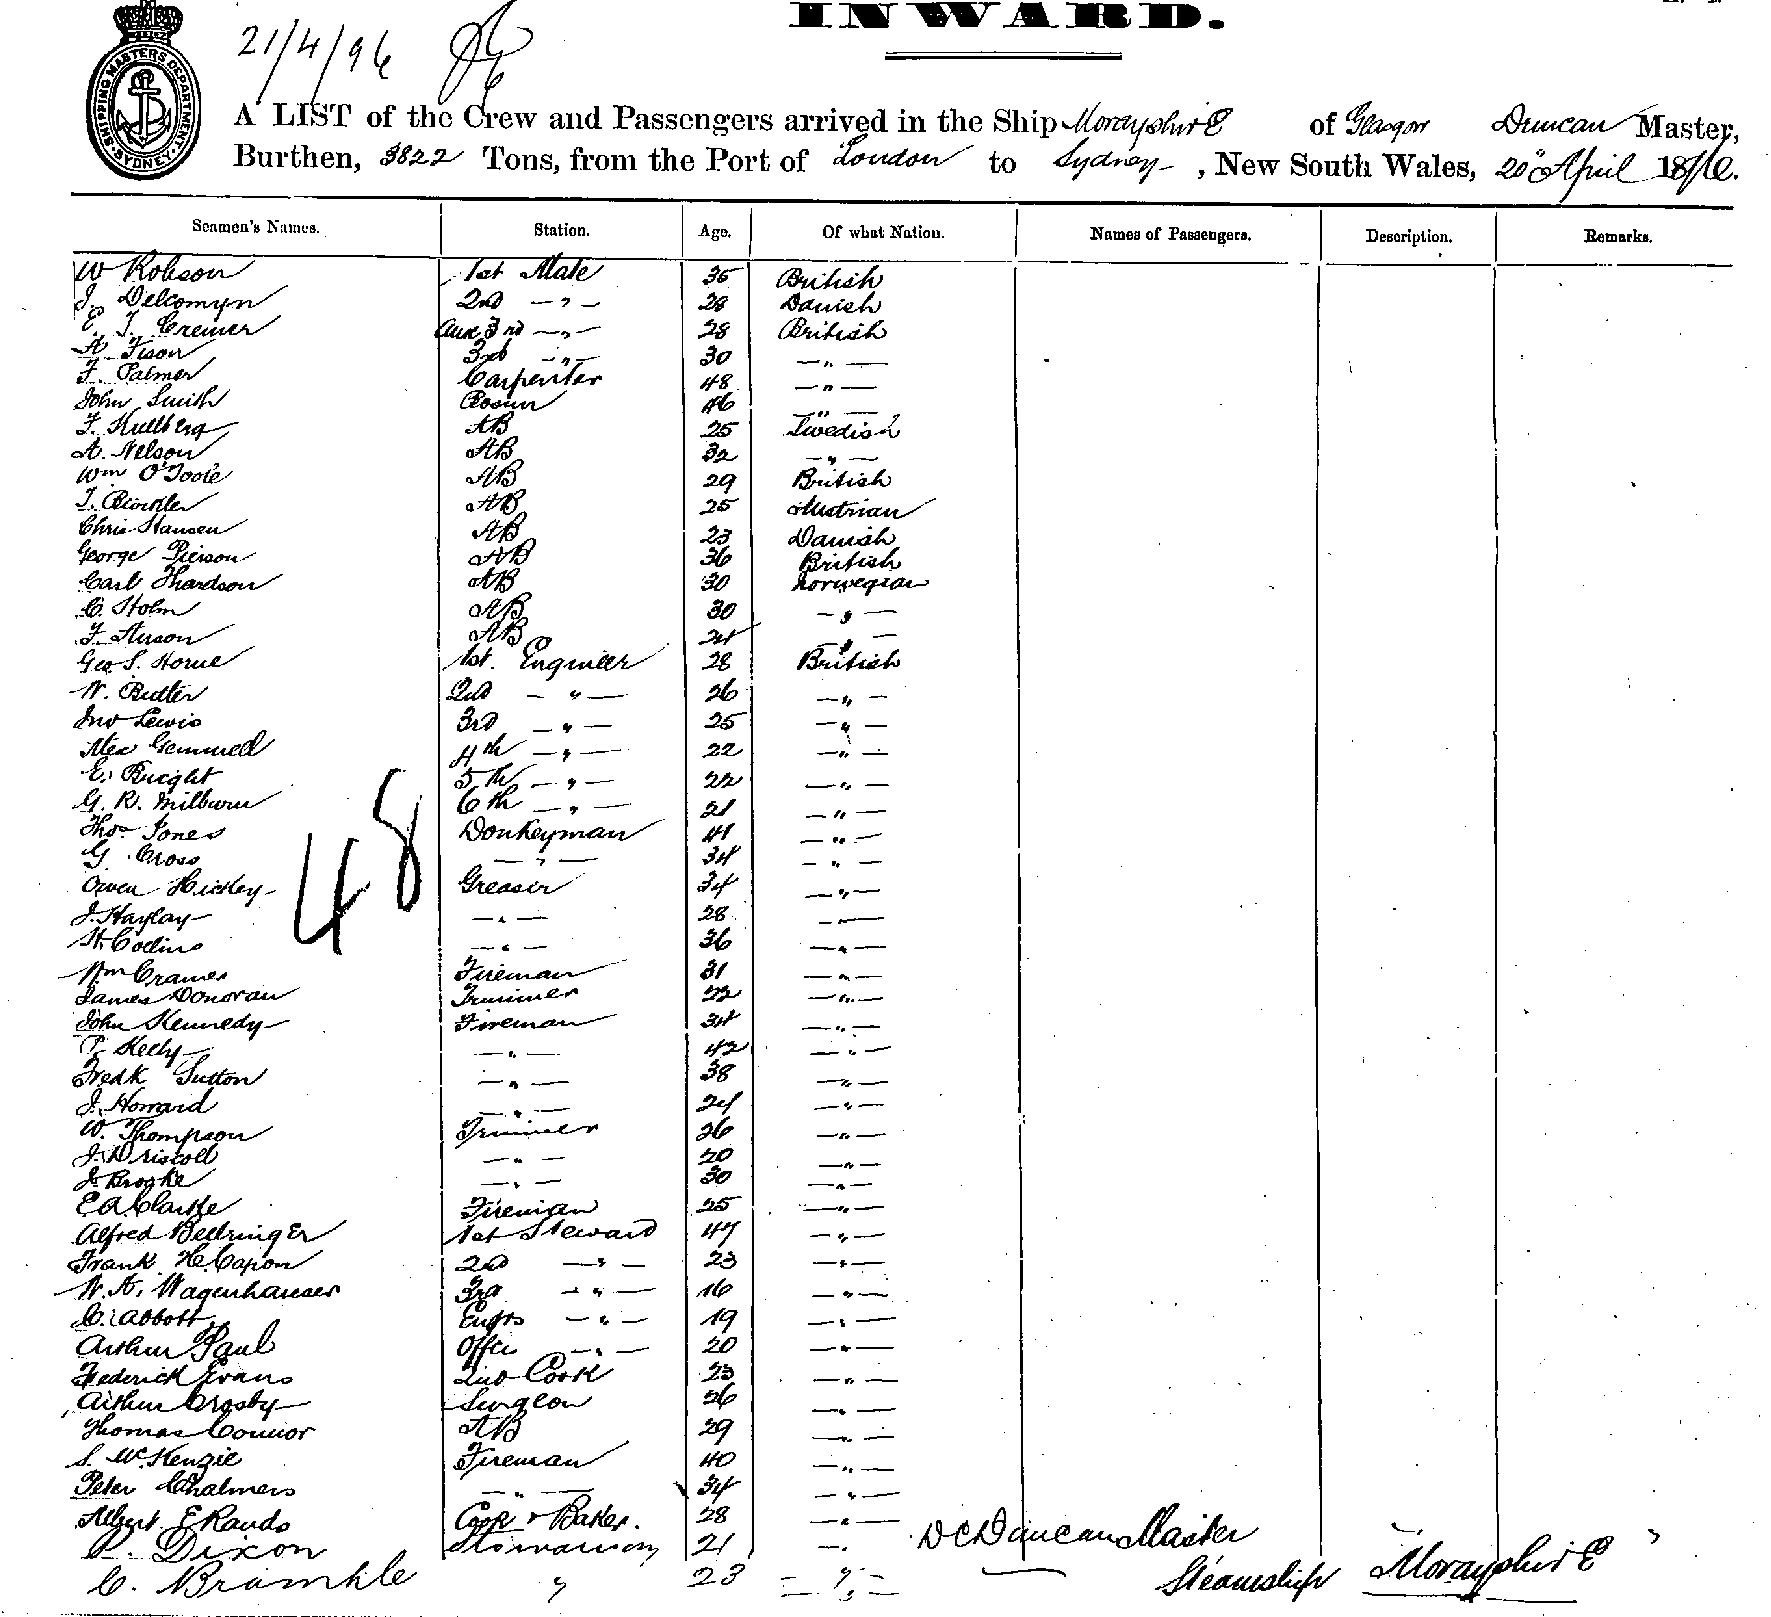 INWARD.
21/4/96
SHIPPING MASTERS DEPARTMENT. SYDNEY.
A LIST of the Crew and Passengers arrived in the Ship MorayshirE of Glasgow Duncan Master,
Burthen, 3822 Tons, from the Port of London to Sydney, New South Wales, 20 April 18
Seamen's Names. Station. Age. Of what Nation. Names of Passengers. Description. Remarks.
W Robson 1st Mate 35 British
J. Delcomyn 2nd — " — 28 Danish
E. J. Cremer Aux 3rd — " — 28 British
A Tison 3rd — " — 30 — " —
F. Palmer Carpenter 48 — " —
John Smith Bosun 46 — " —
F. Kullberg AB 25 Swedish
A. Nelson AB 32 — " —
Wm O'Toole AB 29 British
AB 25 Austrian
Chris Hansen AB 23 Danish
George Pierson AB 36 British
Carl Thardson AB 30 Norwegian
C. Holm AB 30 — " —
F. AB 24 — " —
Geo S. Horne 1st. Engineer 28 British
W. Butler 2nd — " — 26 — " —
Jno Lewis 3rd — " — 25 — " —
Alex Gemmell 4th — " — 22 — " —
E. 5th — " — 22 — " —
G. R. Milburn 6th — " — 21 — " —
Thos Jones Donkeyman 41 — " —
G Cross — " — 34 — " —
48
Owen Hickey Greaser 34 — " —
J. Haylay — " — 28 — " —
H. Collins — " — 36 — " —
Wm Cramer Fireman 31 — " —
James Donovan Trimmer 22 — " —
John Kennedy Fireman 34 — " —
P. Kelly — " — 42 — " —
Fredk Sutton — " — 38 — " —
J. Howard — " — 24 — " —
W. Thompson Trimmer 26 — " —
J. Driscoll — " — 20 — " —
J. Brooke — " — 30 — " —
E A Clarke Fireman 25 — " —
Alfred BellringEr 1st Steward 47 — " —
Frank H. Capon 2nd — " — 23 — " —
W. A. Wagenhauser 3rd — " — 16 — " —
C. Abbott Engrs — " — 19 — " —
Arthur Paul Offcs — " — 20 — " —
Frederick Evans 2nd Cook 23 — " —
Arthur Crosby Surgeon 26 — " —
Thomas Connor AB 29 — " —
S. McKenzie Fireman 40 — " —
Peter Chalmers — " — 34 — " —
Albert E Rands Cook & Baker. 28 — " —
Dixon 21 — " D C Duncan Master
C. Bramble " 23 — " — Steamship MorayshirE